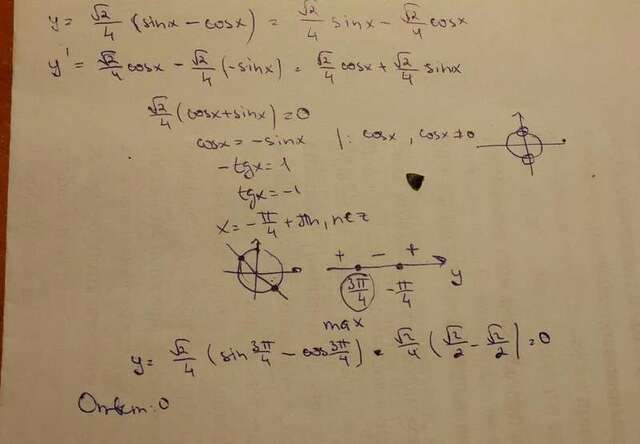 y = √2/4 (sinx − cosx) = √2/4 sinx − √2/4 cosx
y' = √2/4 cosx − √2/4 (−sinx) = √2/4 cosx + √2/4 sinx
√2/4 (cosx + sinx) = 0
cosx = −sinx |: cosx, cosx ≠ 0
−tgx = 1
tgx = −1
x = −π/4 + πn, n ∈ z
+ − +
3π/4 −π/4 y
max
y = √2/4 (sin 3π/4 − cos 3π/4) = √2/4 (√2/2 − √2/2) = 0
Ответ: 0